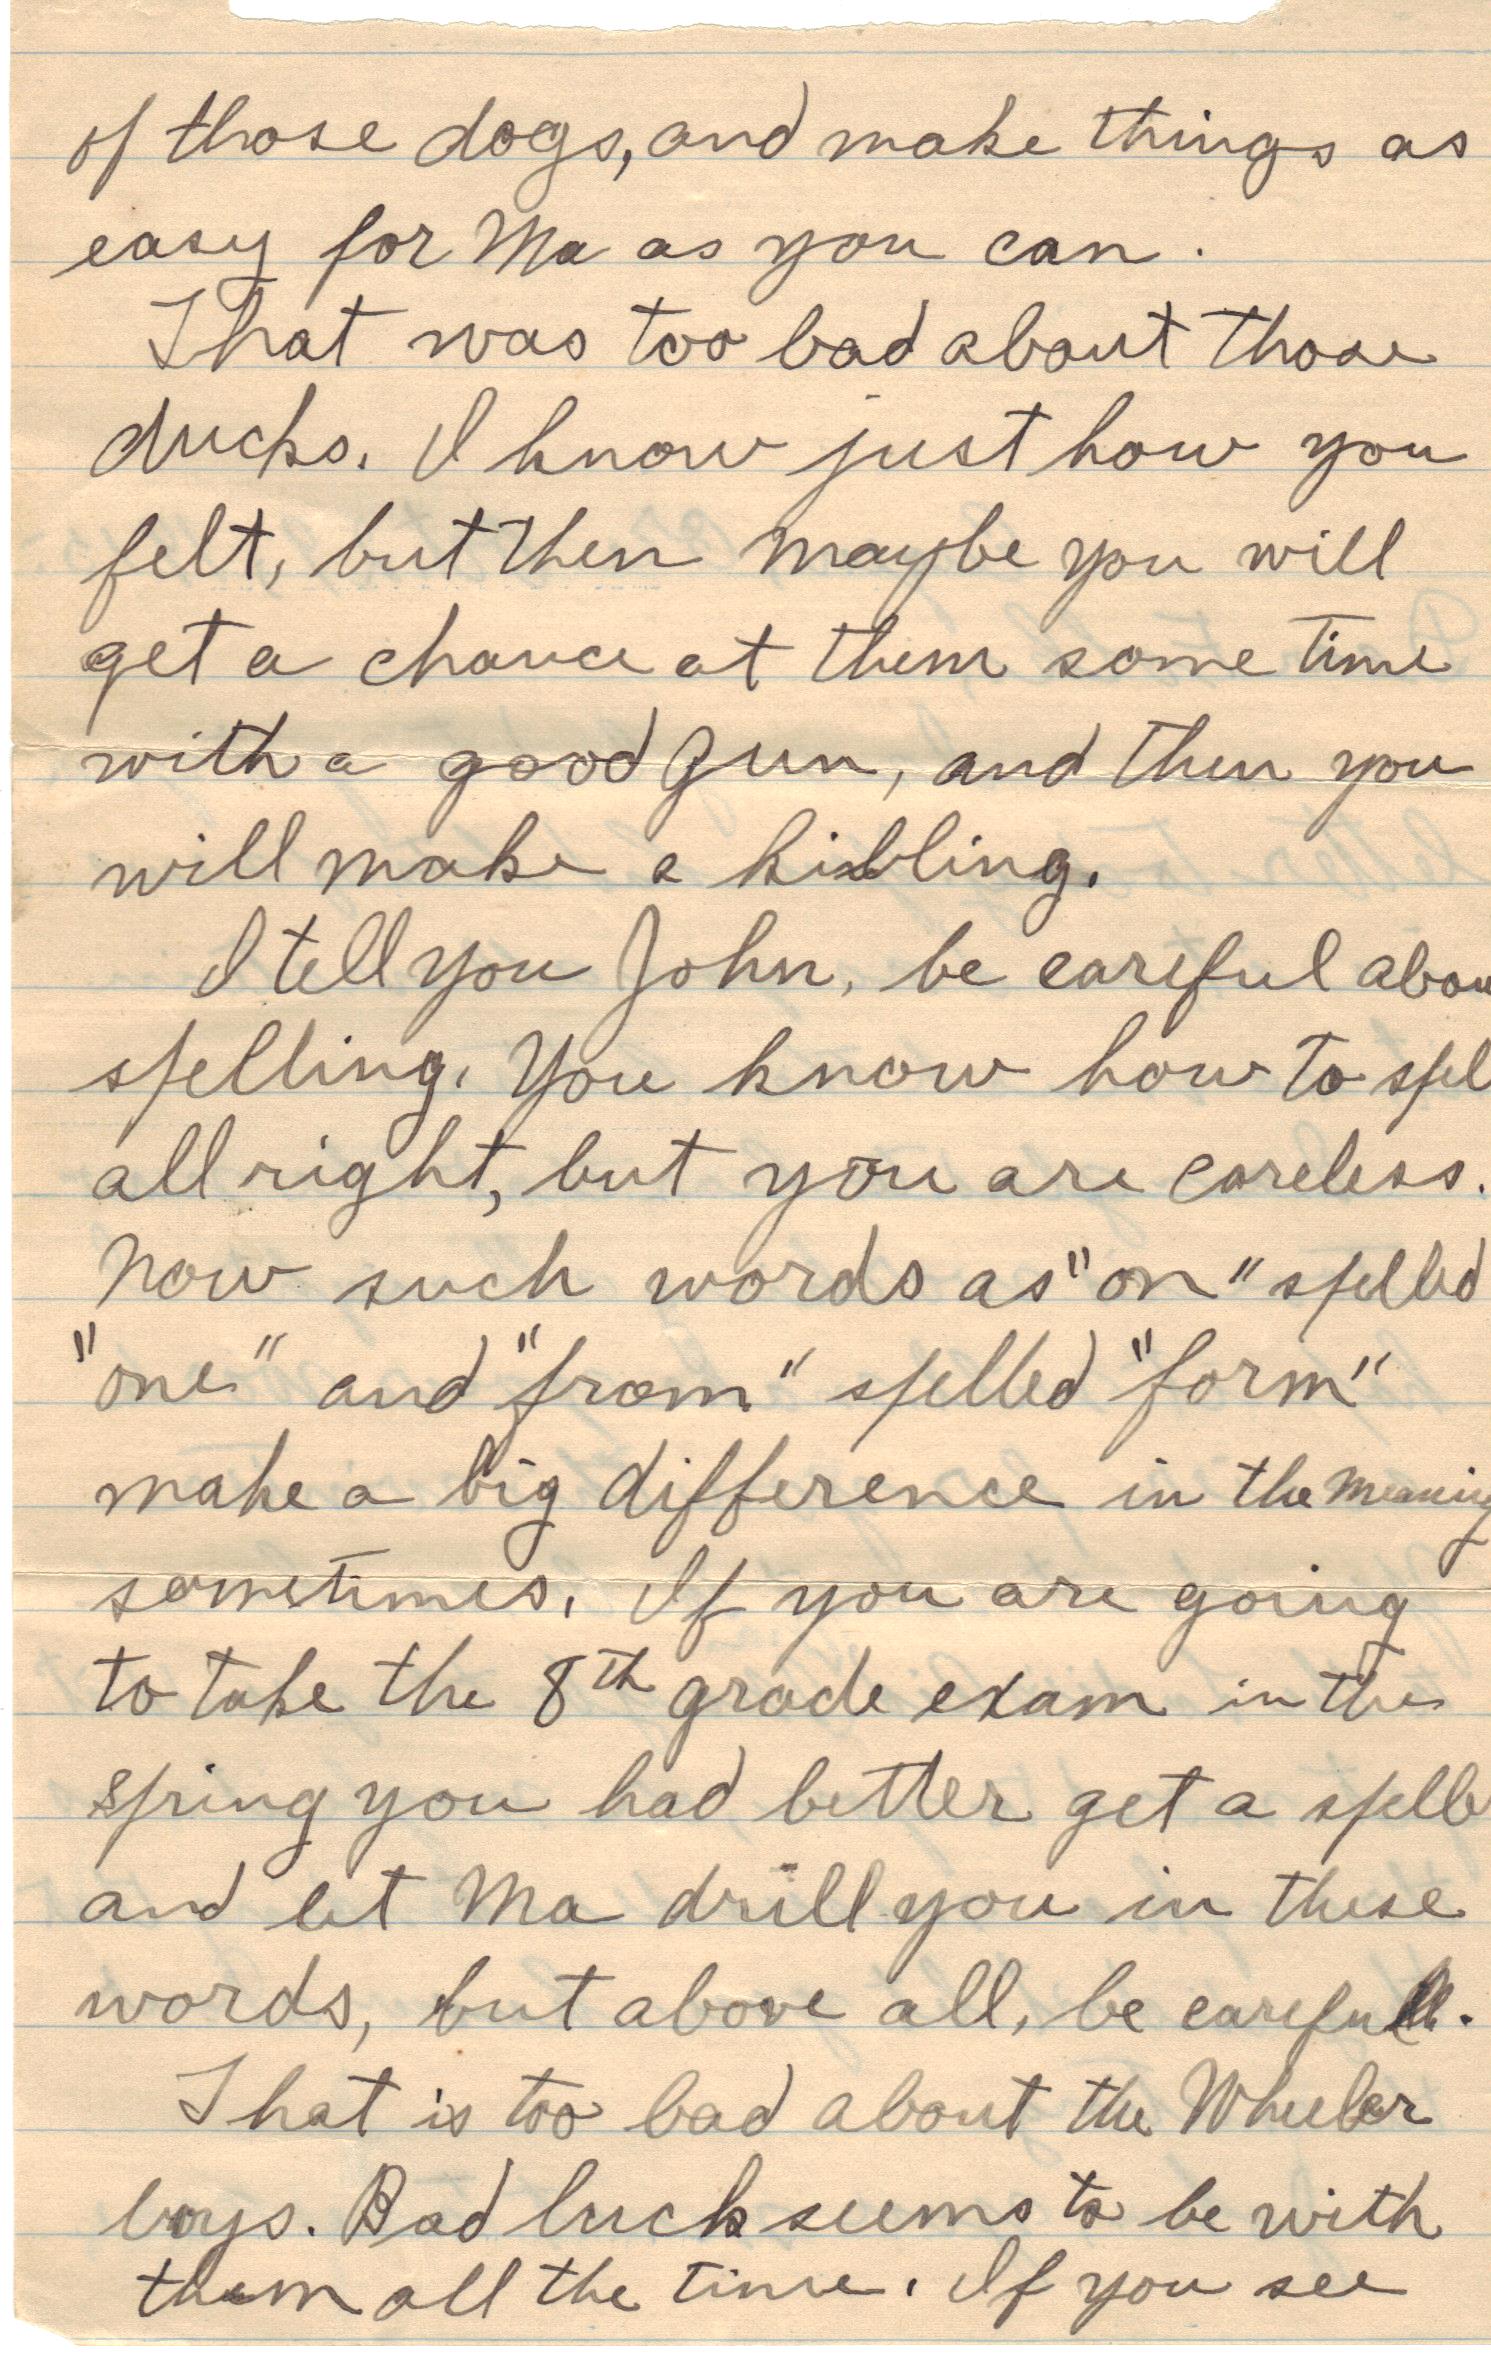 of those dogs, and make things as
easy for Ma as you can.
That was too bad about those
ducks. I know just how you
felt, but then maybe you will
get a chance at them some time
with a good gun, and then you
will make a killing.
I tell you John, be careful abou
spelling. You know how to spel
all right, but you are careless.
Now such words as "on" spelled
"one" and "from" spelled "form"
make a big difference in the meaning
sometimes. If you are going
to take the 8th grade exam in the
spring you had better get a spelle
and let Ma drill you in these
words, but above all, be careful.
That is too bad about the Wheeler
boys. Bad luck seems to be with
them all the time. If you see